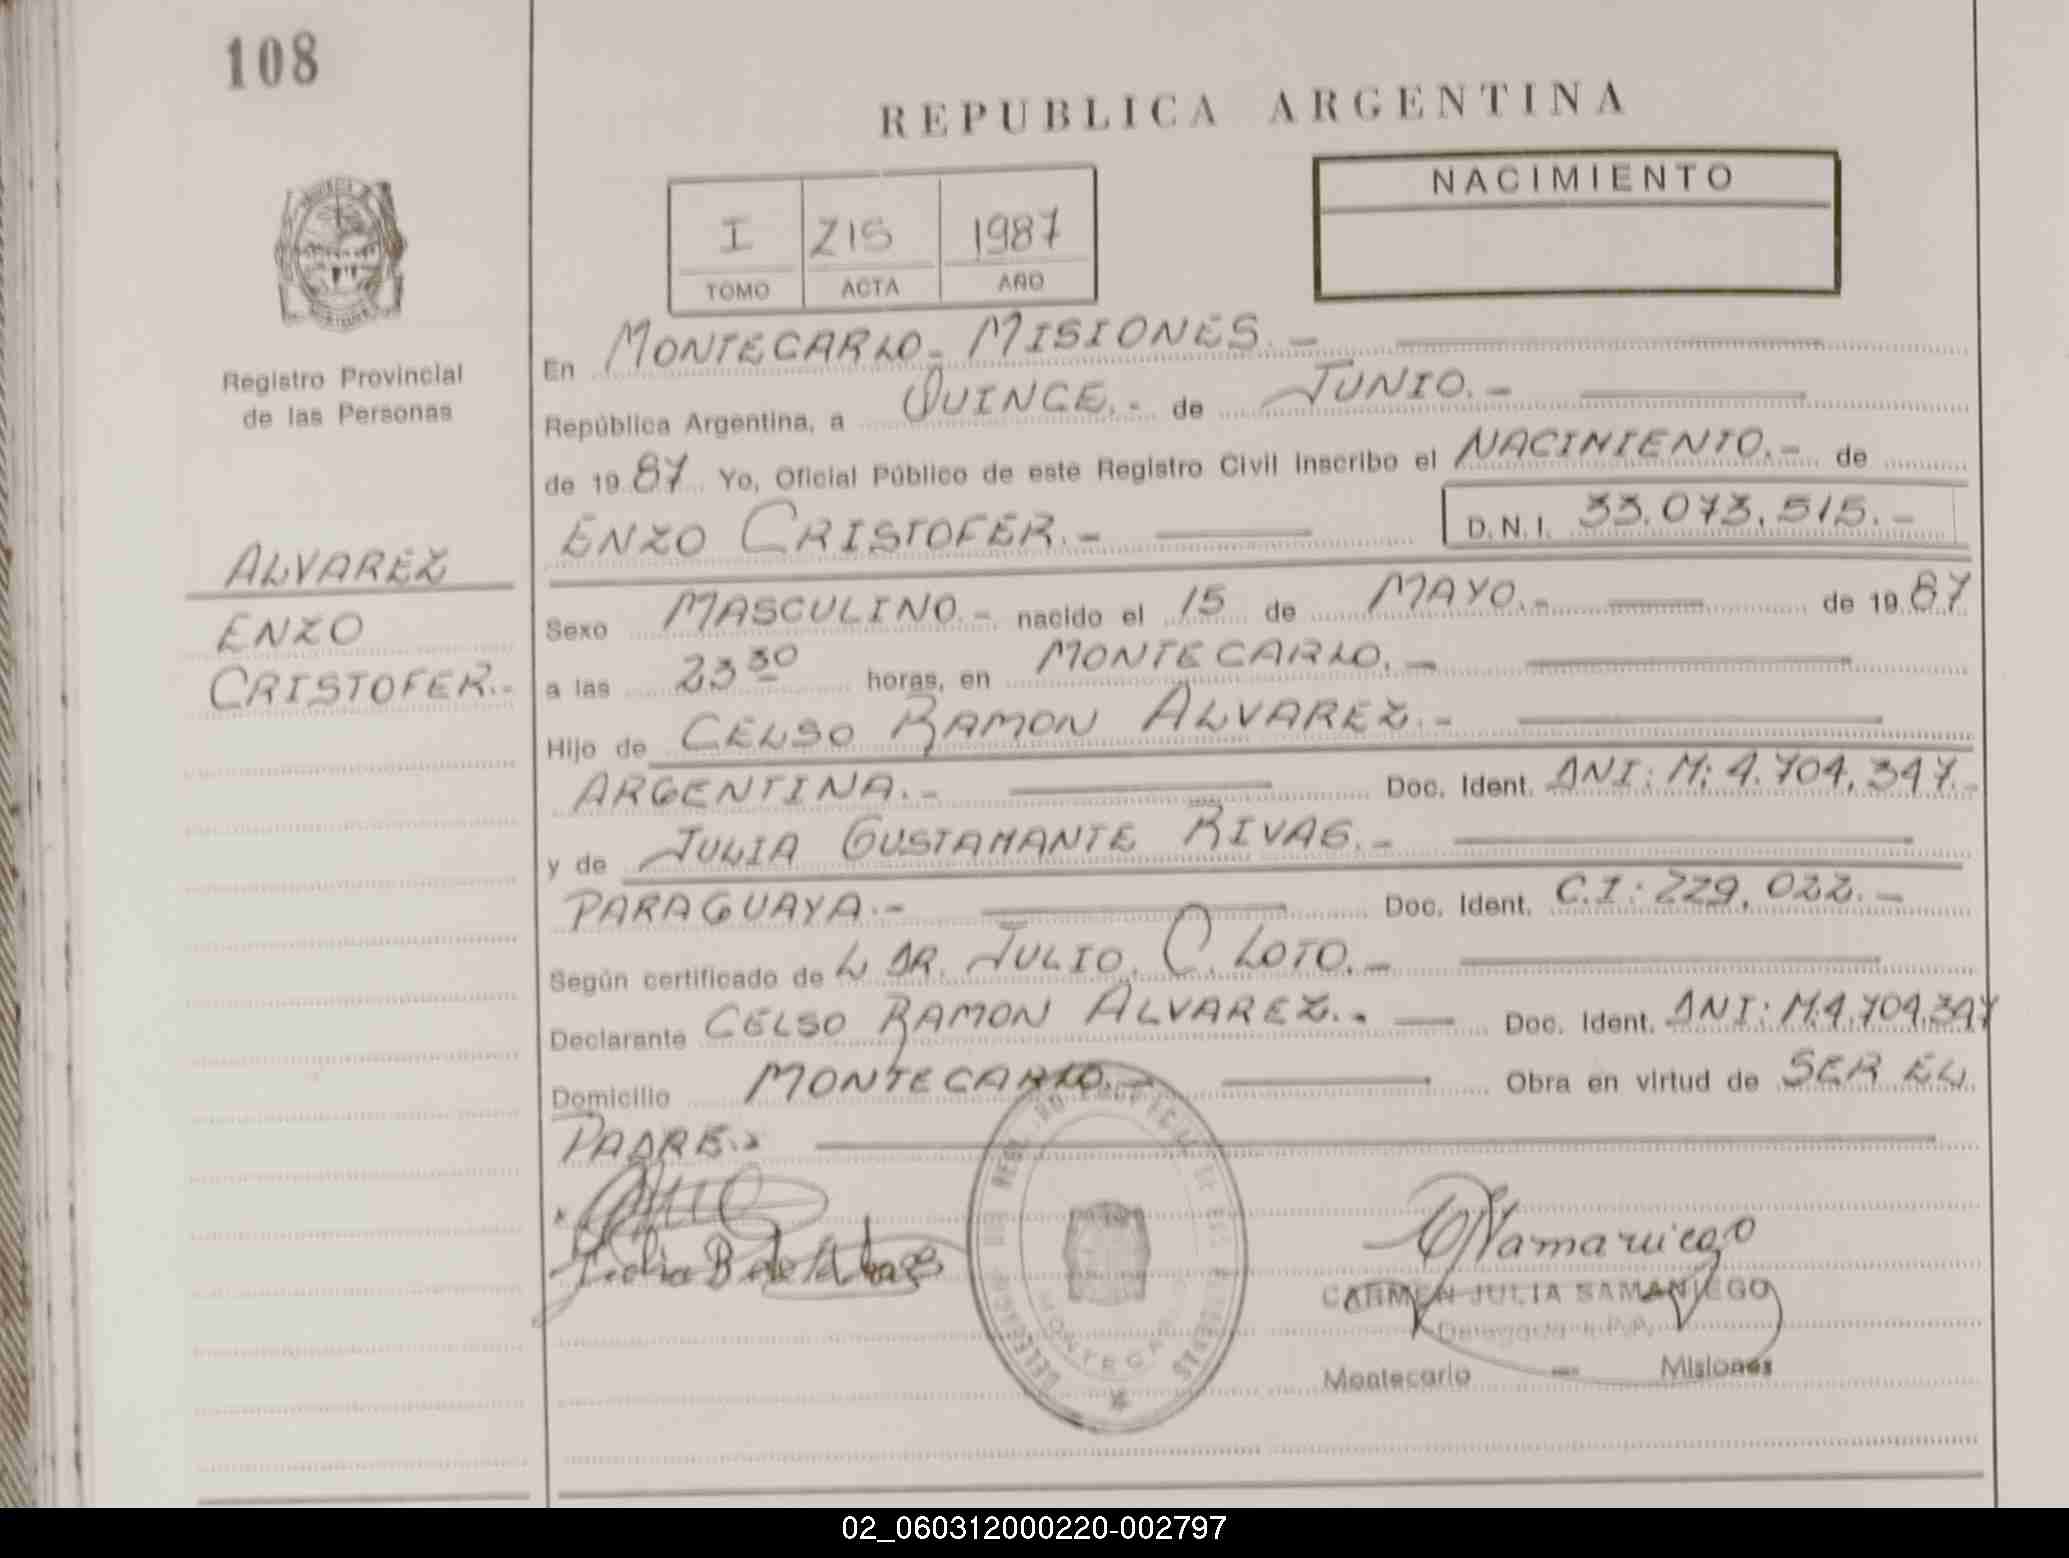 108
REPUBLICA ARGENTINA
NACIMIENTO
I 215 1987
TOMO ACTA AÑO
Registro Provincial
de las Personas
ALVAREZ
ENZO
CRISTOFER.-
En MONTECARLO- MISIONES.-
República Argentina, a QUINCE.- de JUNIO.-
de 1987 Yo, Oficial Público de este Registro Civil inscribo el NACIMIENTO.- de
ENZO CRISTOFER.- D.N.I. 33.073.515.-
Sexo MASCULINO.- nacido el 15 de MAYO.- de 1987
a las 23 30 horas, en MONTECARLO.-
Hijo de CELSO RAMON ALVAREZ.-
ARGENTINA.- Doc. Ident. DNI: M: 4.704.347.-
y de JULIA BUSTAMANTE RIVAS.-
PARAGUAYA.- Doc. Ident. C.I: 229.022.-
Según certificado de L DR. JULIO. C. LOTO.-
Declarante CELSO RAMON ALVAREZ.- Doc. Ident. DNI: M.4.704.347
Domicilio MONTECARLO.- Obra en virtud de SER EL
PADRE.-
CARMEN JULIA SAMANIEGO
Delegada R.P.P.
Montecarlo - Misiones
02_060312000220-002797